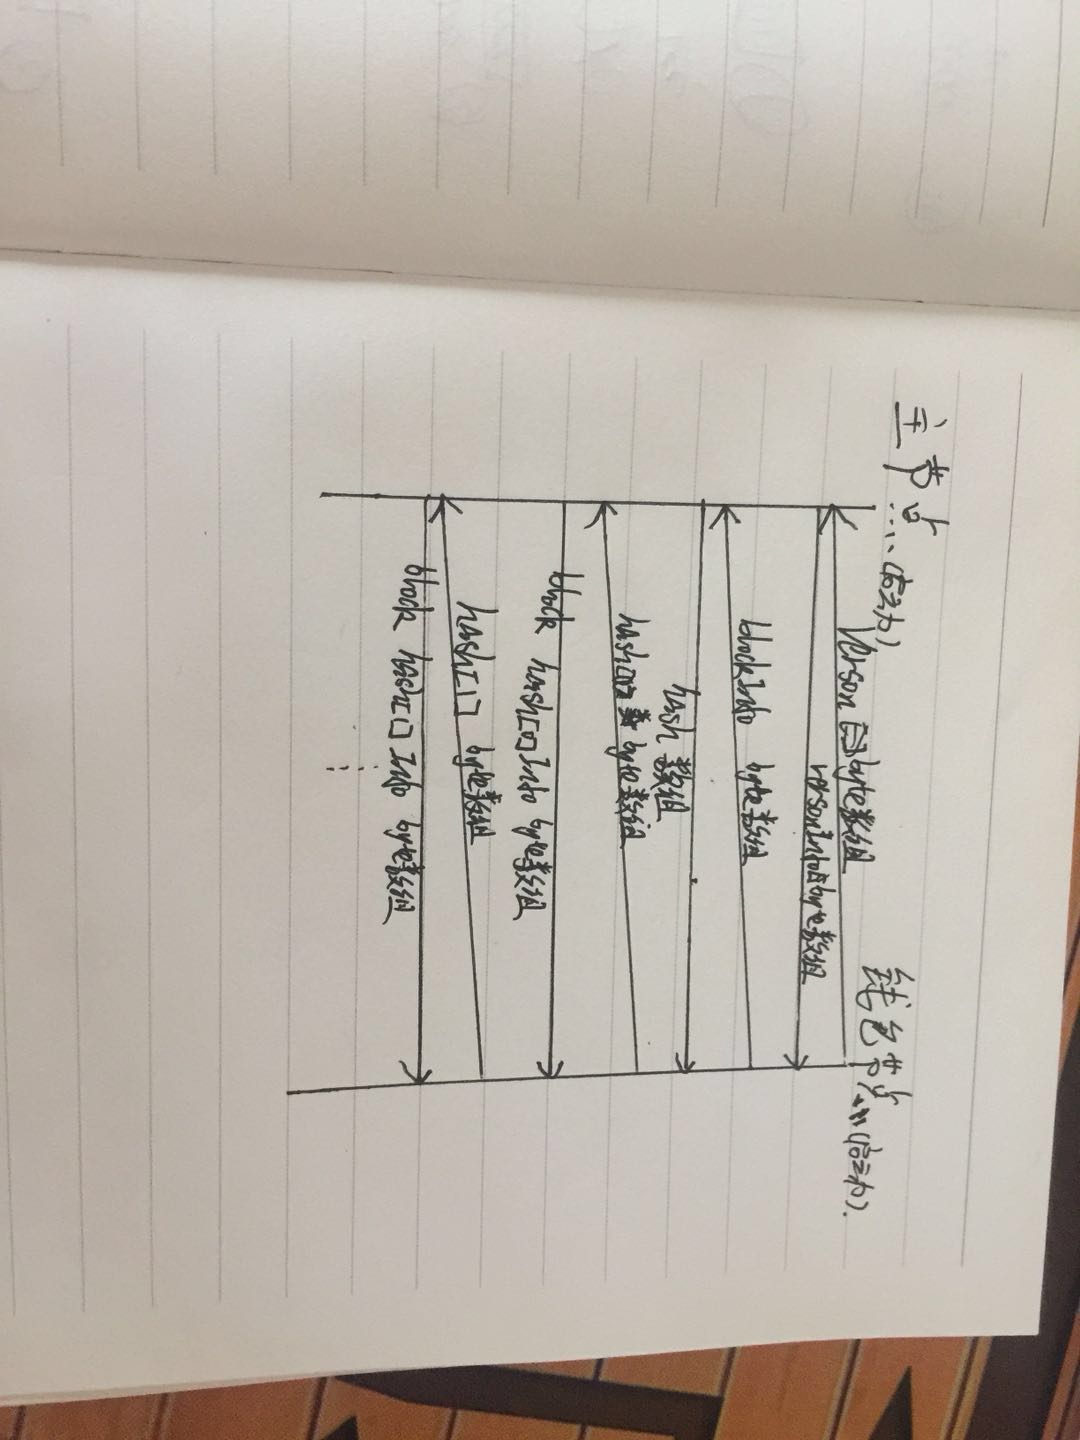 主节点...(启动)
钱包节点...(启动).
Verson 的byte数组
versonInfo的byte数组
blockInfo byte数组
hash 数组
hash[0] byte数组
block hash[0] Info byte数组
hash[1] byte数组
block hash[1] Info byte数组
......